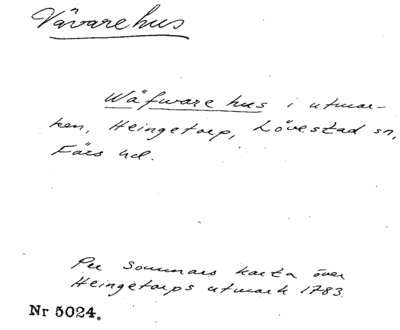 Vävarehus
Wäfware hus i utmar-
ken, Heingetorp, Lövestad sn,
Färs hd.
Per Sommars karta över
Heingetorps utmark 1783.
Nr 5024.